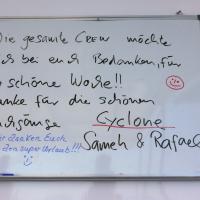 Die gesamte CREW möchte
sich bei euch Bedanken für
schöne Woche!!
Danke für die schönen
Cyclone
Wir danken Euch
Sameh & Rafael
den super Urlaub!!!